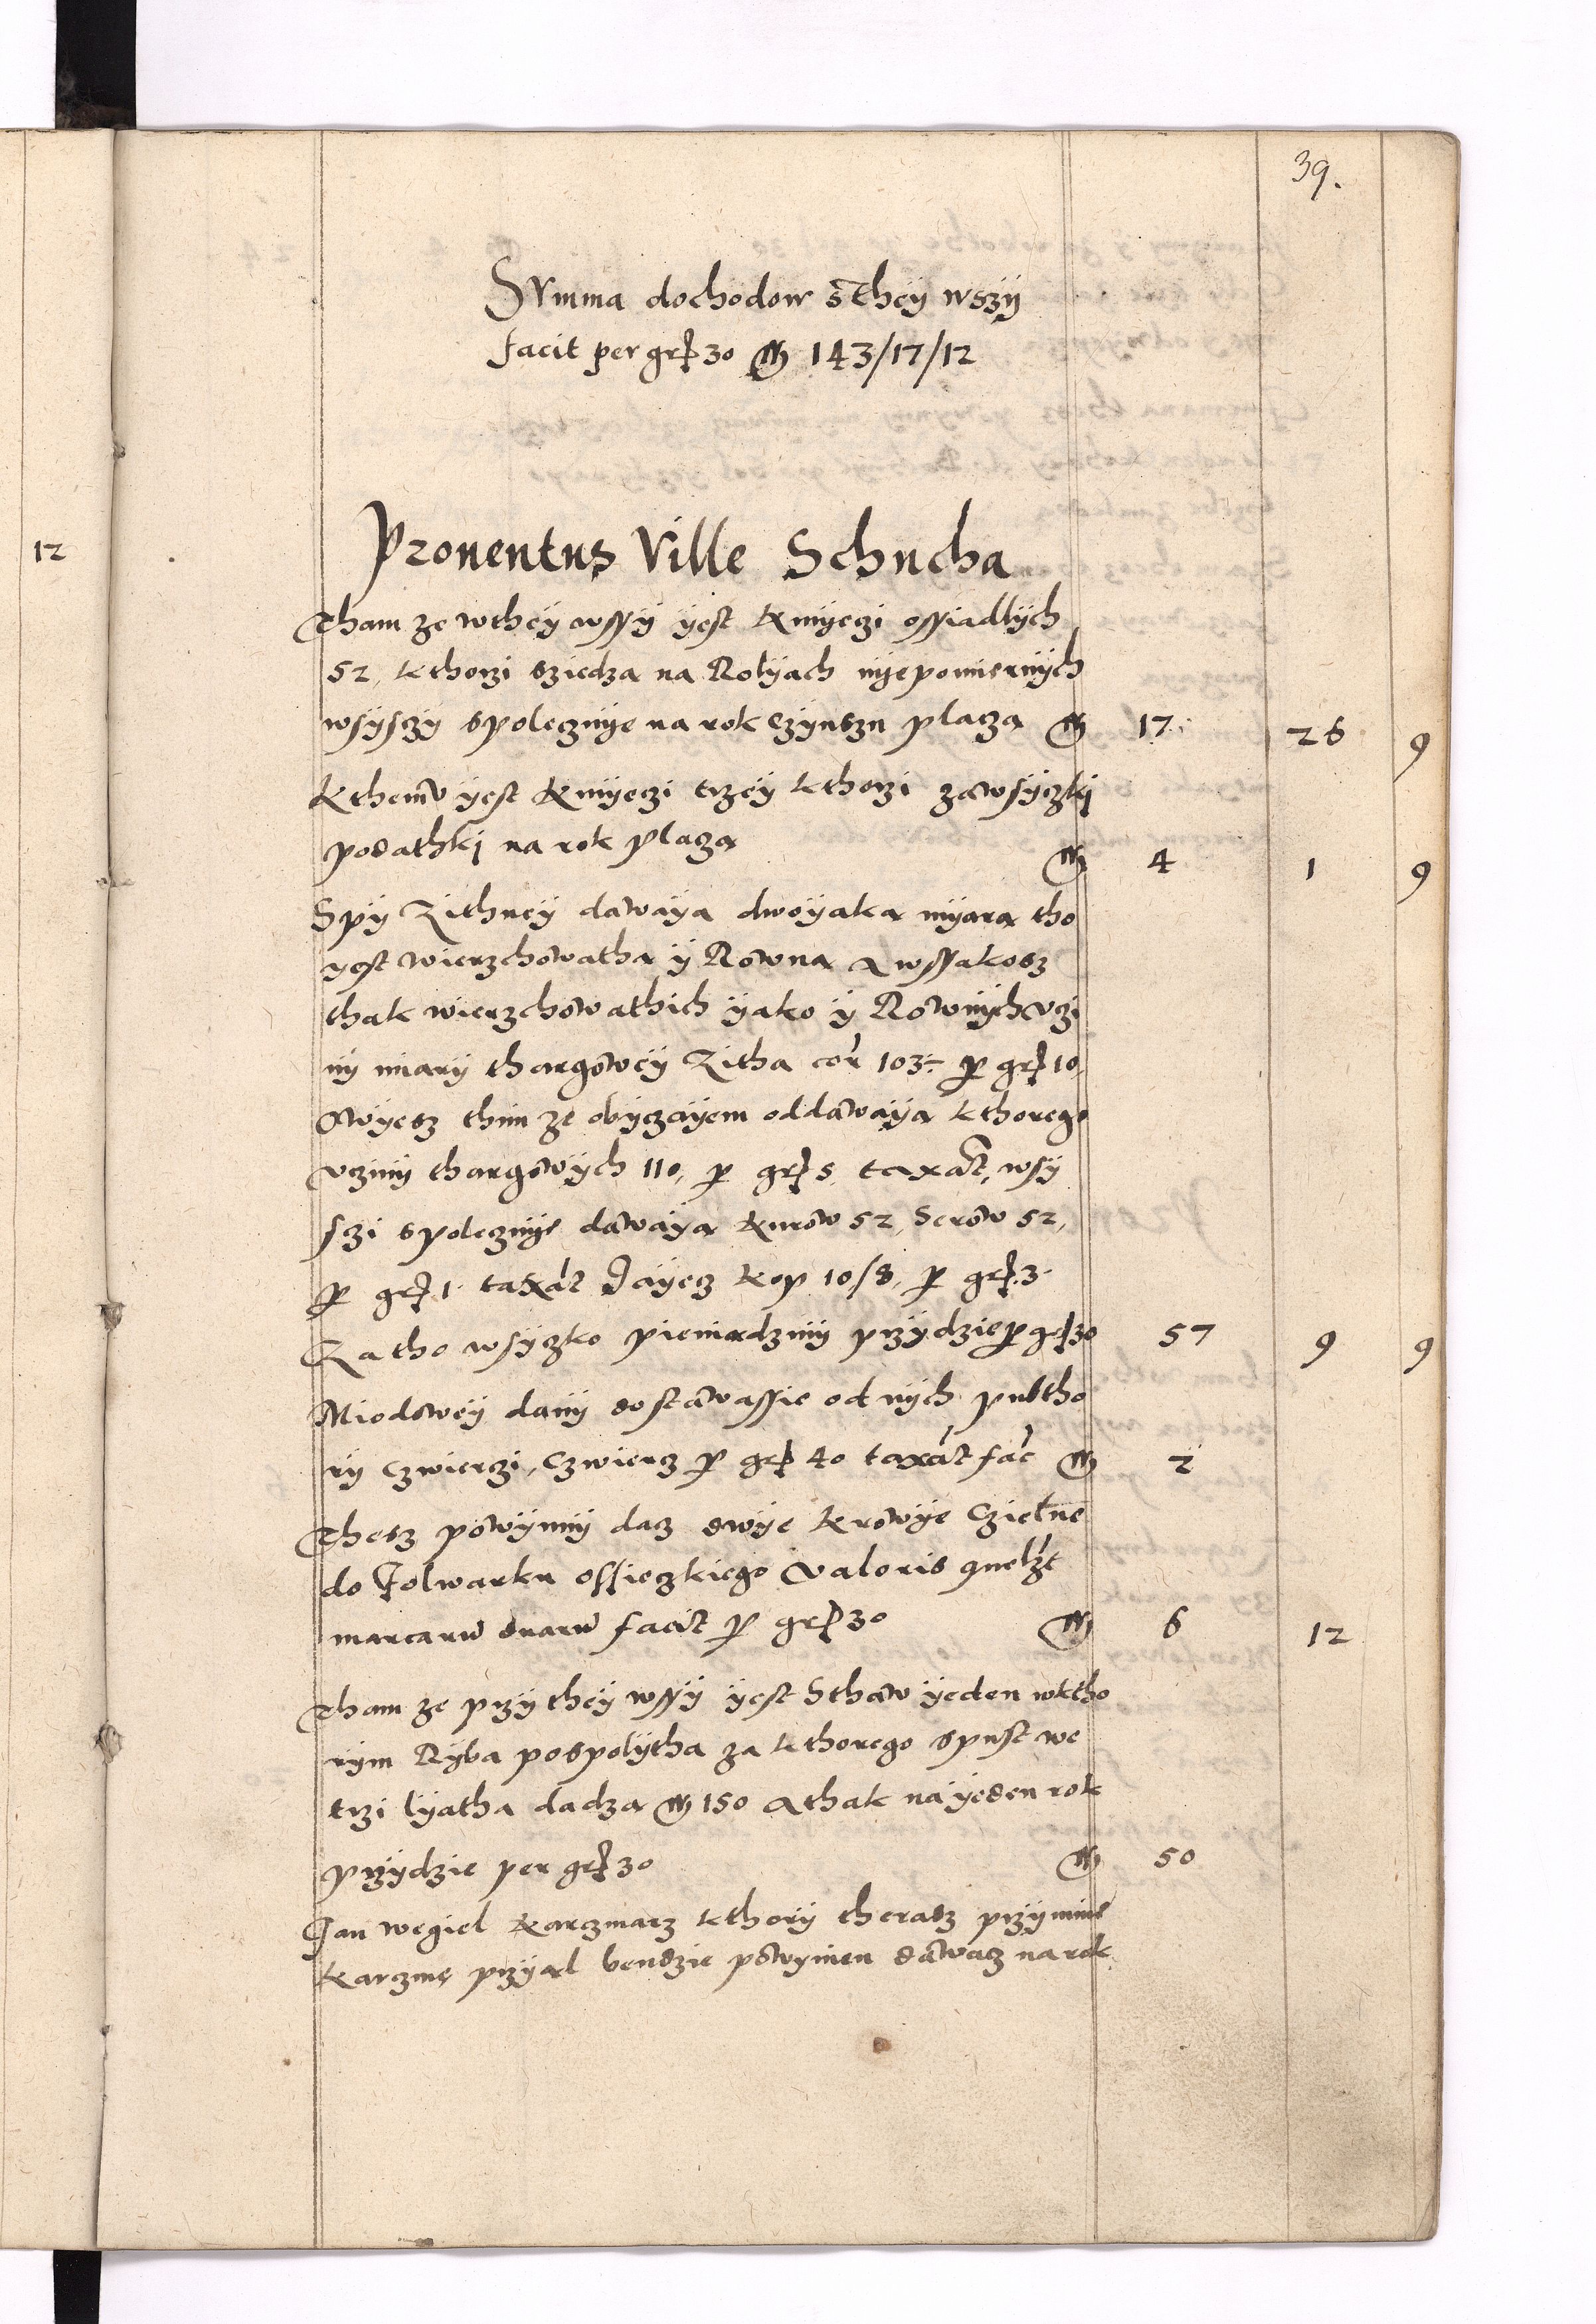 39.
Summa dochodow s they wszÿ
facit per gr 30 m 143/17/12
12
Prouentus Ville Schucha
Tham ze wthey wssÿ ÿest Kmÿeczi ossiadlÿch
52, kthorzi sziedza na Rolÿach nÿepomiernÿch
wsÿsczÿ spolecznÿe na rok czÿnszu placza m 17 26 9
Kthemu ÿest Kmÿeczi trzeÿ kthorzi zawsÿczkj
podathkj na rok placza m 4 1 9
Spÿ Zithneÿ dawaÿa dwoÿaka mÿara tho
ÿest wierzchowatha ÿ Rowna awssakosz
thak wierzchowathich ÿako ÿ Rownÿch vczi
nÿ miarÿ thargoweÿ Zitha cor 103 p gr 10,
Owÿesz thim ze obÿczaÿem oddawaÿa kthorego
vczinÿ thargowÿch 110, p gr 5 taxat, wsÿ
sczi spolecznÿe dawaÿa kurow 52, Serow 52,
p gr 1 taxat Jaÿecz kop 10/8, p gr 3
Za tho wsÿczko pieniadzmÿ przÿdzie p gr 30 57 9 9
Miodoweÿ danÿ dostawassie od nÿch pultho
rÿ czwierczi, czwiercz p gr 40 taxat fac m 2
Thesz powÿnnÿ dacz dwÿe krowÿe Czielne
do Folwarku ossieczkiego valoris quelzt
marcarum duarum facit p gr 30 m 6 12
Tham ze przÿ theÿ wssÿ ÿest Sthaw ÿeden wktho
rÿm Rÿba pospolÿtha za kthorego spust we
trzi lÿatha dadza m 150 athak na ÿeden rok
przÿdzie per gr 30 m 50
Jan wegiel karczmarz kthorÿ therasz przÿmie
karczme przÿal bendzie powÿnien dawacz na rok